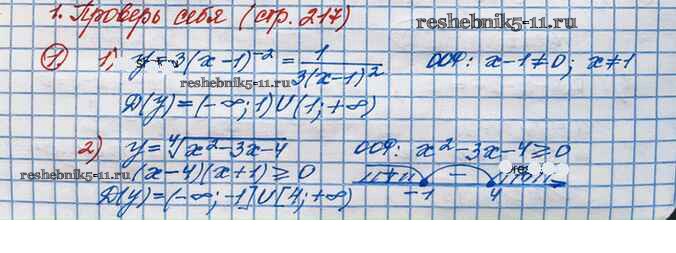 1. Проверь себя (стр. 217)
reshebnik5-11.ru
1. 1) y = 3(x-1)⁻² = 1/3(x-1)² ООФ: x-1≠0; x≠1
D(y)=(-∞;1)U(1;+∞)
reshebnik5-11.ru
2) y=⁴√x²-3x-4 ООФ: x²-3x-4⩾0
reshebnik5-11.ru (x-4)(x+1)⩾0 + −
D(y)=(-∞;-1]U[4;+∞) -1 4